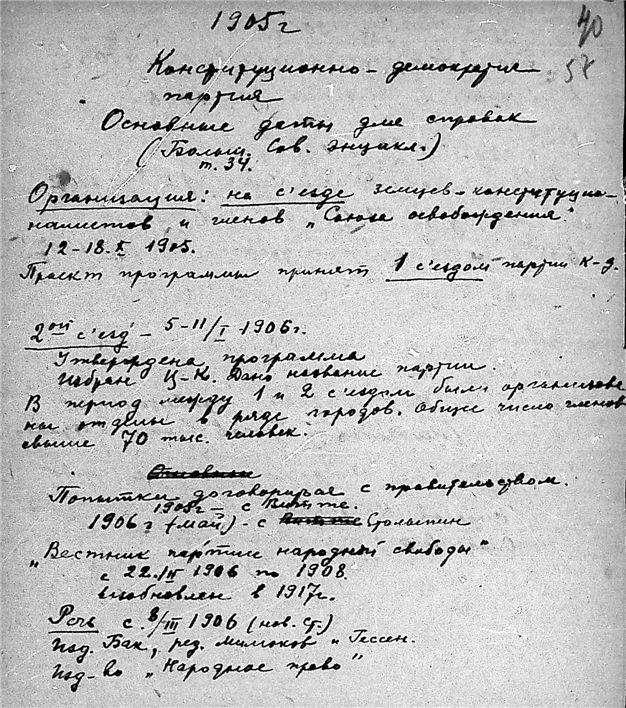 1905г
40
57
Конституционно-демократич
партия
Основные даты для справок
(Больш. Сов. Энцикл.)
т. 34.
Организация: на с'езде земцев-конституцио-
налистов и членов „Союза освобождения".
12-18.X 1905.
Проект программы принят 1 с'ездом партии к-д.
2ой с'езд - 5-11/I 1906г.
Утверждена программа
Избран Ц-К. Дано название партии.
В период между 1 и 2 с'ездом были организова
ны отделы в ряде городов. Общее число членов
свыше 70 тыс. человек.
Основные
Попытки договориться с правительством.
1905г - с Витте.
1906г (май) - с Витте Столыпин
„Вестник партии народной свободы"
с 22./II 1906 по 1908.
возобновлен в 1917г.
Речь с 8/III 1906 (нов. ст.)
Изд. Бак, ред. Милюков и Гессен.
Изд-во „Народное право"